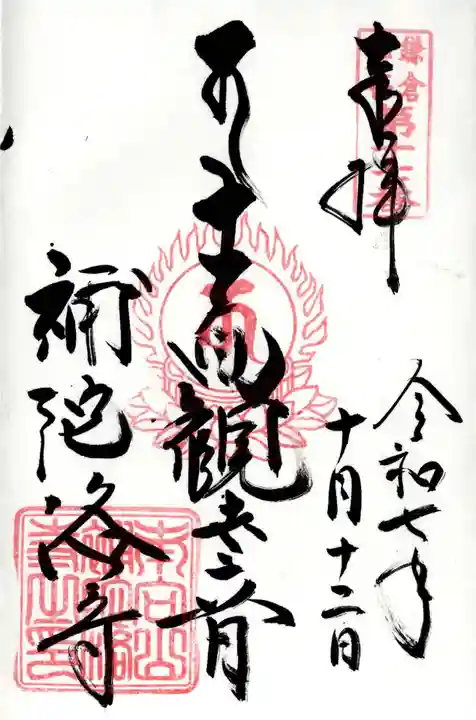 鎌倉第
奉拝
令和七年
十月十二日
十一面觀世音
補陀洛寺